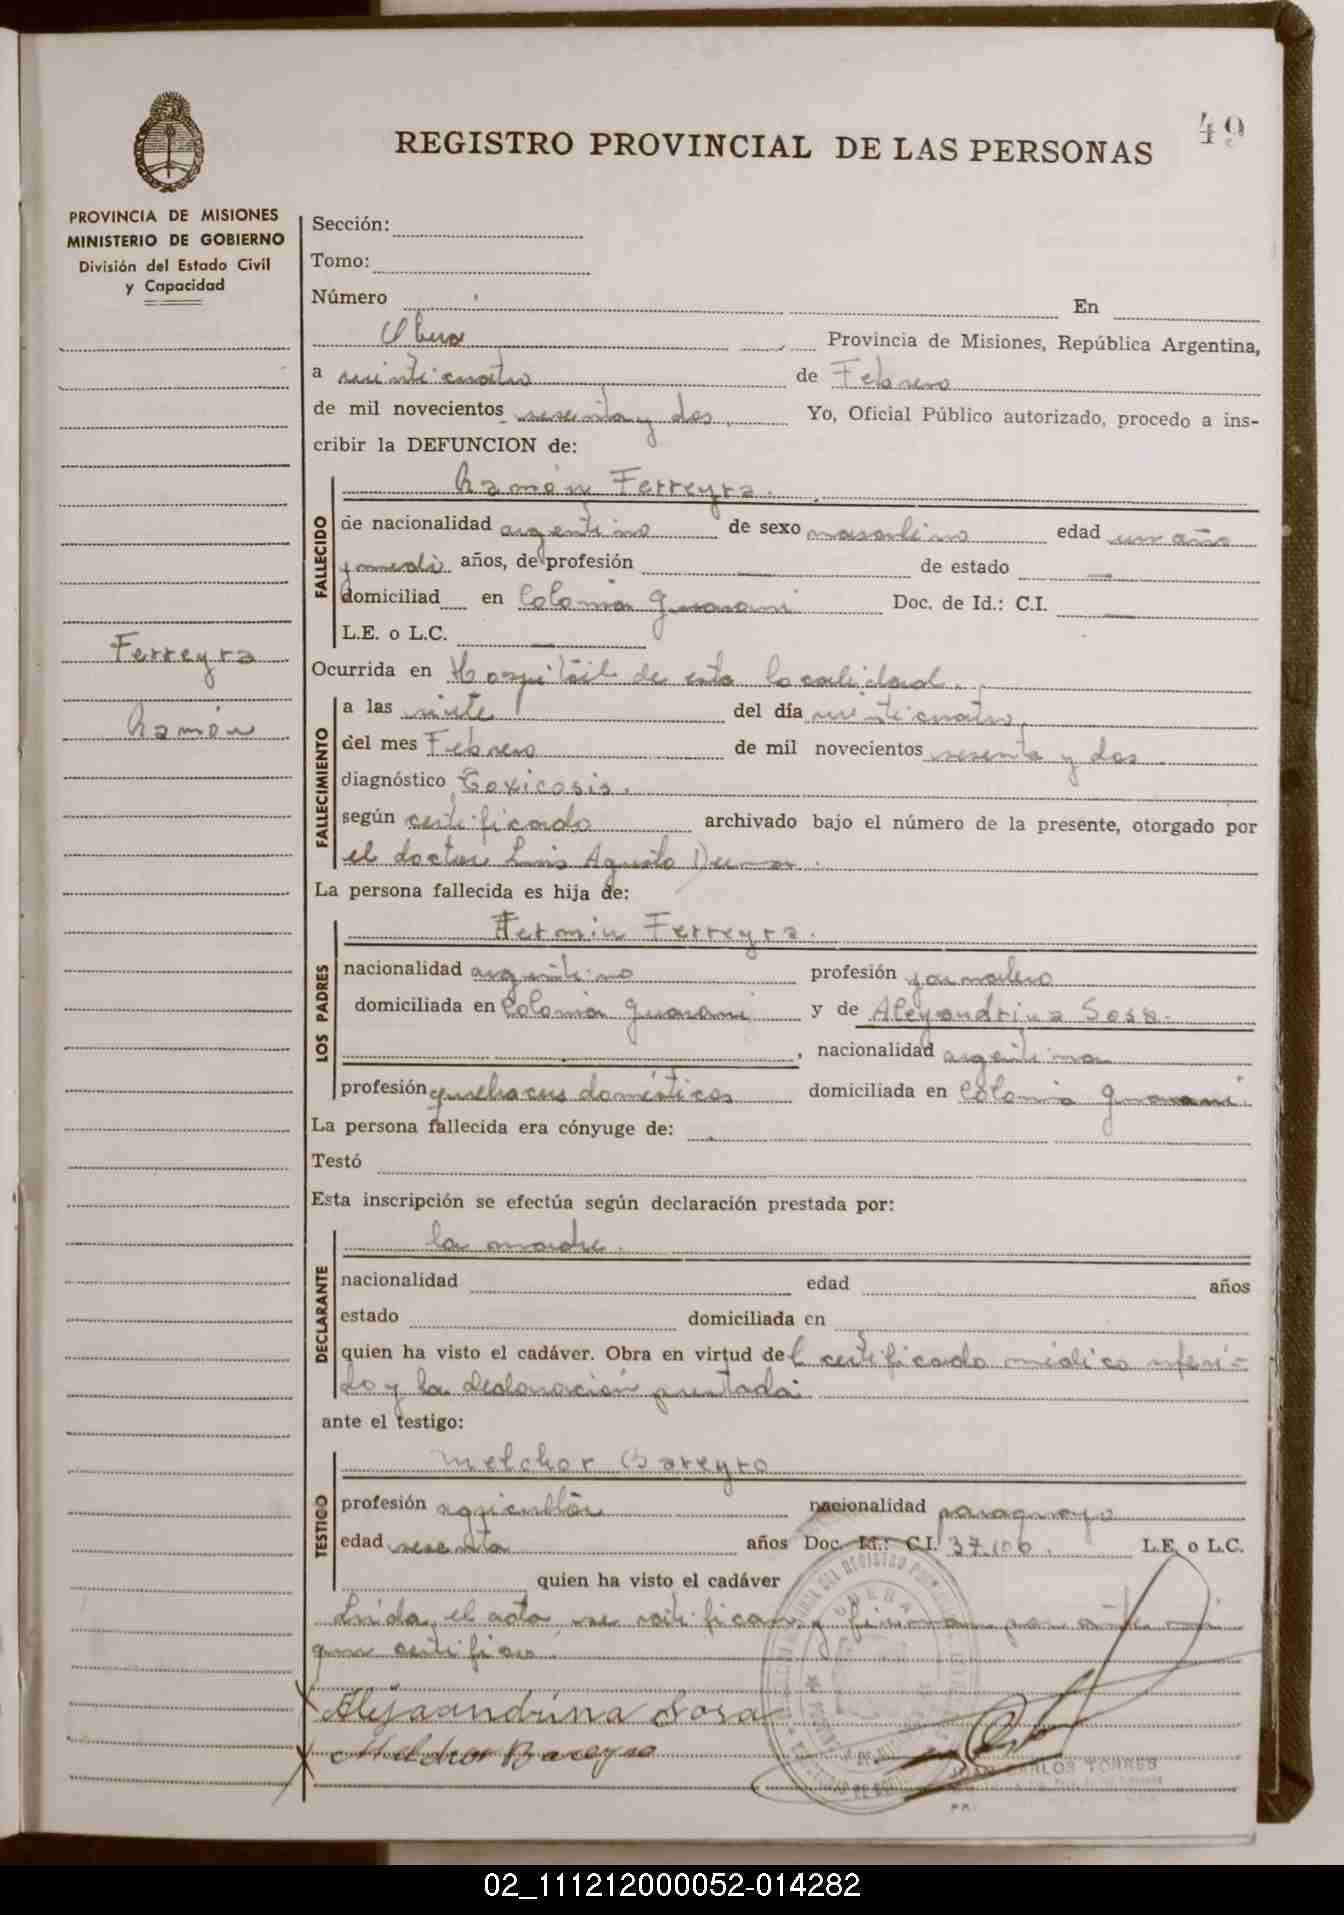 49
REGISTRO PROVINCIAL DE LAS PERSONAS
PROVINCIA DE MISIONES
MINISTERIO DE GOBIERNO
División del Estado Civil
y Capacidad
Sección:
Tomo:
Número En
Obera Provincia de Misiones, República Argentina,
a veinticuatro de Febrero
de mil novecientos sesenta y dos. Yo, Oficial Público autorizado, procedo a ins-
cribir la DEFUNCION de:
Ramón Ferreyra.
FALLECIDO
de nacionalidad argentino de sexo masculino edad un año
y medio años, de profesión — de estado —
domiciliad en Colonia Guarani Doc. de Id.: C.I. —
L.E. o L.C. —
Ferreyra
Ramón
Ocurrida en Hospital de esta localidad.
FALLECIMIENTO
a las del día veinticuatro
del mes Febrero de mil novecientos sesenta y dos.
diagnóstico Toxicosis.
según certificado archivado bajo el número de la presente, otorgado por
el doctor Luis Agusto
La persona fallecida es hija de:
LOS PADRES
Fermin Ferreyra.
nacionalidad argentino profesión jornalero
domiciliada en Colonia Guarani y de Aleyandrina Sosa.
, nacionalidad argentina
profesión quehaceres domésticos domiciliada en Colonia Guarani.
La persona fallecida era cónyuge de:
Testó
Esta inscripción se efectúa según declaración prestada por:
DECLARANTE
la madre.
nacionalidad edad años
estado domiciliada en
quien ha visto el cadáver. Obra en virtud del certificado médico referi-
do y la declaración prestada.
ante el testigo:
TESTIGO
Melchor Bareyro
profesión agricultor nacionalidad paraguayo
edad sesenta años Doc. Id.: C.I. 37.106. L.E. o L.C.
quien ha visto el cadáver
Leida el acta, se ratifican y firman por ante mi
que certifico.
Alejaandrina Sosa
Melchor Bareyro
JUAN CARLOS TORRES
02_111212000052-014282